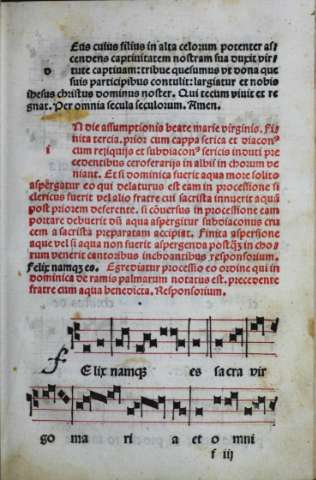 Eus cuius filius in alta celorum potenter as⸗
cendens captiuitatem nostram sua duxit vir⸗
o tute captiuam: tribue quesumus vt dona que
suis participibus contulit: largiatur et nobis
ihesus christus dominus noster. Qui tecum viuit et re
gnat. Per omnia secula seculorum. Amen.
N die assumptionis beate marie virginis. Fi⸗
nita tercia. prior cum cappa serica et diaconꝰ
i cum reliquijs et subdiaconꝰ sericis induti pre
cedentibus ceroferarijs in albis in chorum ve
niant. Et si dominica fuerit aqua more solito
aspergatur eo qui delaturus est eam in processione si
clericus fuerit vel alio fratre cui sacrista innuerit aquā
post priorem deferente. si cōuersus in processione eam
portare debuerit dū aqua aspergitur subdiaconus cru
cem a sacrista preparatam accipiat. Finita aspersione
aque vel si aqua non fuerit aspergenda postq̄ȝ in cho
rum venerit cantoribus inchoantibus responsorium.
Felix namqȝ es. Egrediatur processio eo ordine qui in
dominica de ramis palmarum notatus est. precedente
fratre cum aqua benedicta. Responsorium.
f Elix namqȝ es sacra vir
go maria et omni
f iij